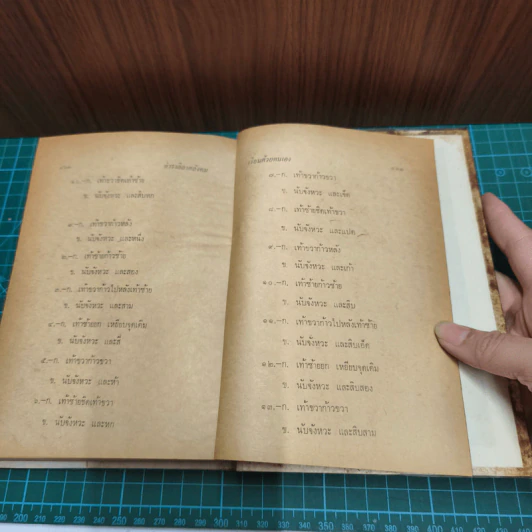 ๑๖.-ก. เท้าขวาชิดเท้าซ้าย
ข. นับจังหวะ และสิบหก
๑.-ก. เท้าขวาก้าวหลัง
ข. นับจังหวะ และหนึ่ง
๒.-ก. เท้าซ้ายก้าวซ้าย
ข. นับจังหวะ และสอง
๓.-ก. เท้าขวาก้าวไปหลังเท้าซ้าย
ข. นับจังหวะ และสาม
๔.-ก. เท้าซ้ายยก เหยียบจุดเดิม
ข. นับจังหวะ และสี่
๕.-ก. เท้าขวาก้าวขวา
ข. นับจังหวะ และห้า
๖.-ก. เท้าซ้ายชิดเท้าขวา
ข. นับจังหวะ และหก
เรียนด้วยตนเอง
๗.-ก. เท้าขวาก้าวขวา
ข. นับจังหวะ และเจ็ด
๘.-ก. เท้าซ้ายชิดเท้าขวา
ข. นับจังหวะ และแปด
๙.-ก. เท้าขวาก้าวหลัง
ข. นับจังหวะ และเก้า
๑๐.-ก. เท้าซ้ายก้าวซ้าย
ข. นับจังหวะ และสิบ
๑๑.-ก. เท้าขวาก้าวไปหลังเท้าซ้าย
ข. นับจังหวะ และสิบเอ็ด
๑๒.-ก. เท้าซ้ายยก เหยียบจุดเดิม
ข. นับจังหวะ และสิบสอง
๑๓.-ก. เท้าขวาก้าวขวา
ข. นับจังหวะ และสิบสาม